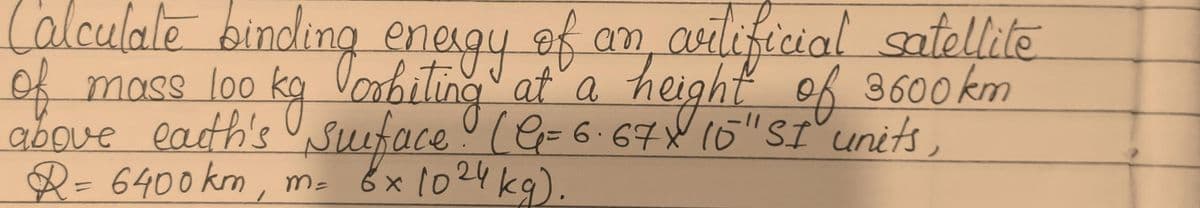 Calculate binding energy of an artificial satellite
of mass 100 kg orbiting at a height of 3600 km
above earth's surface. (G= 6.67x 10¯¹¹ SI units,
R= 6400 km, m= 6x 10²⁴ kg).